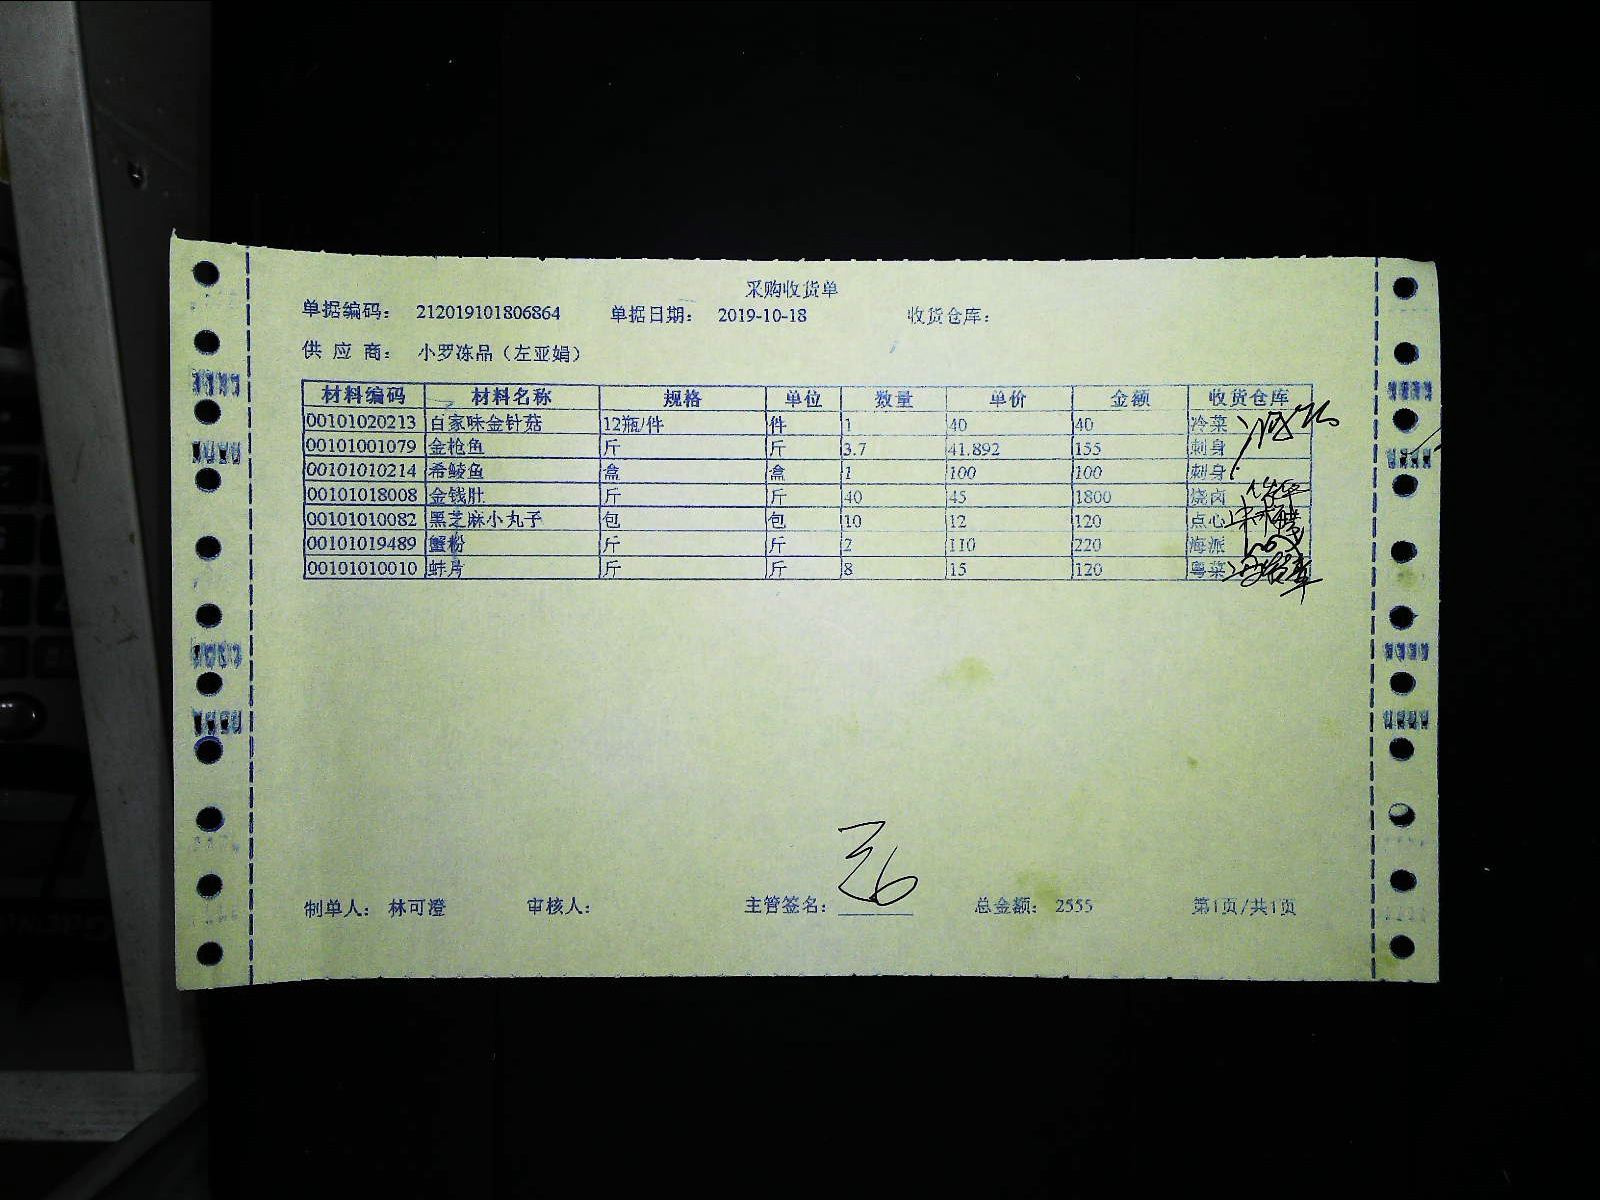 采购收货单
单据编码： 212019101806864 单据日期： 2019-10-18 收货仓库：
供 应 商： 小罗冻品（左亚娟）
材料编码 材料名称 规格 单位 数量 单价 金额 收货仓库
00101020213 百家味金针菇 12瓶/件 件 1 40 40 冷菜
00101001079 金枪鱼 斤 斤 3.7 41.892 155 刺身
00101010214 希鲮鱼 盒 盒 1 100 100 刺身
00101018008 金钱肚 斤 斤 40 45 1800 烧卤
00101010082 黑芝麻小丸子 包 包 10 12 120 点心
00101019489 蟹粉 斤 斤 2 110 220 海派
00101010010 蚌片 斤 斤 8 15 120 粤菜
制单人： 林可澄 审核人： 主管签名： 总金额： 2555 第1页/共1页